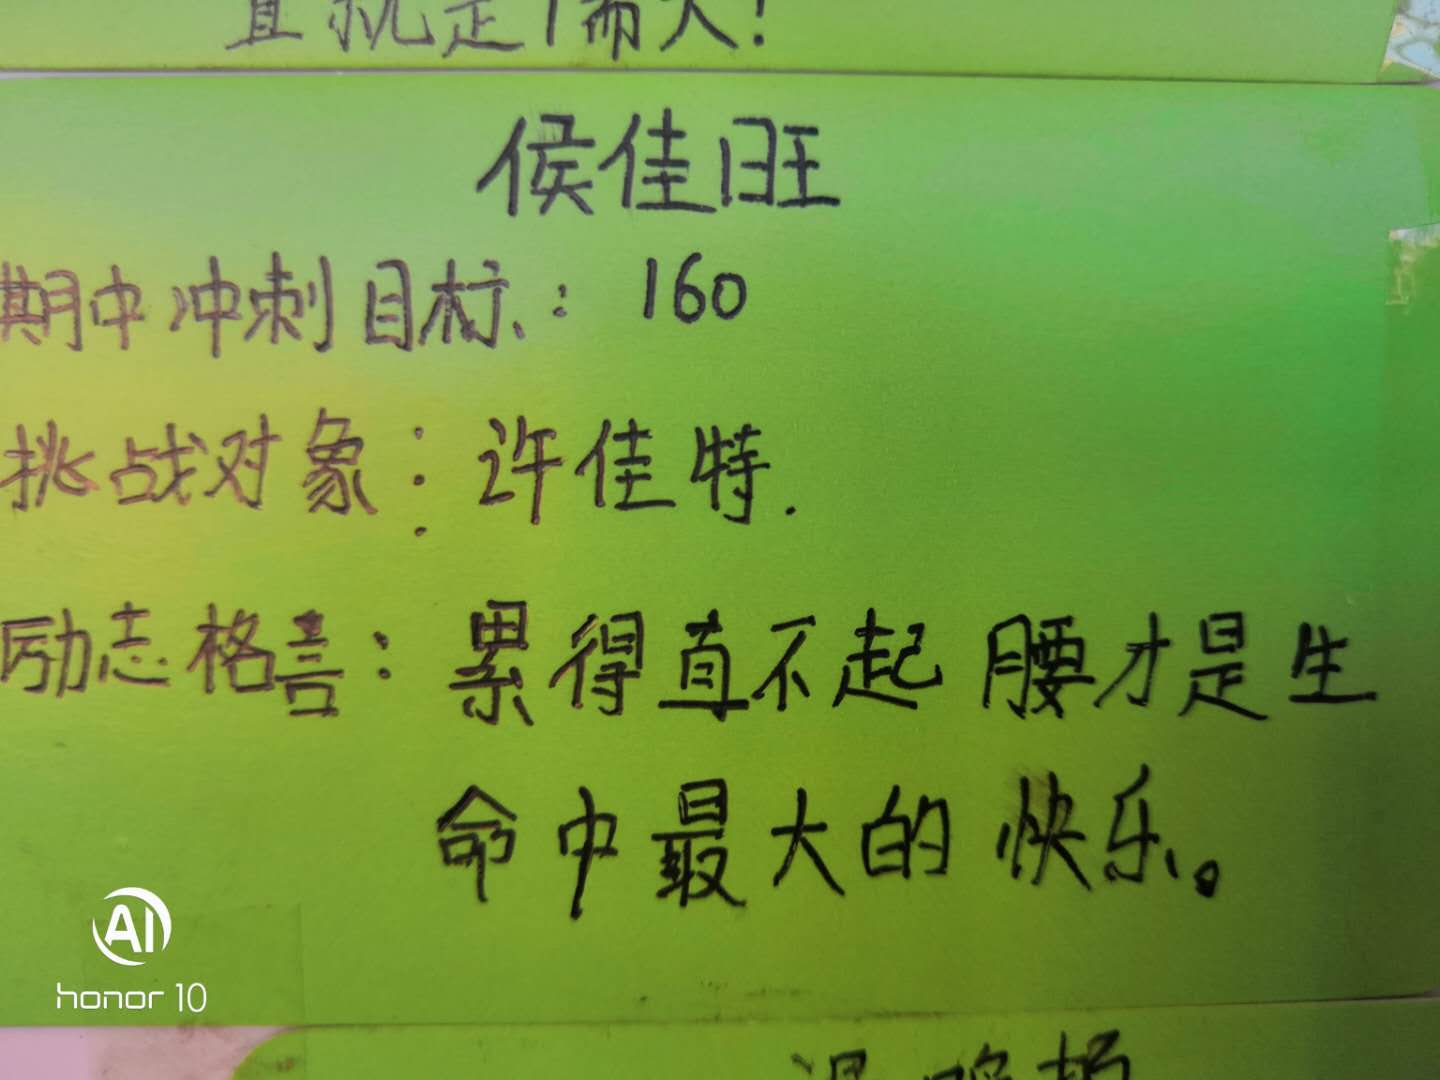 侯佳旺
期中冲刺目标：160
挑战对象：许佳特.
励志格言：累得直不起腰才是生
命中最大的快乐。
AI
honor 10